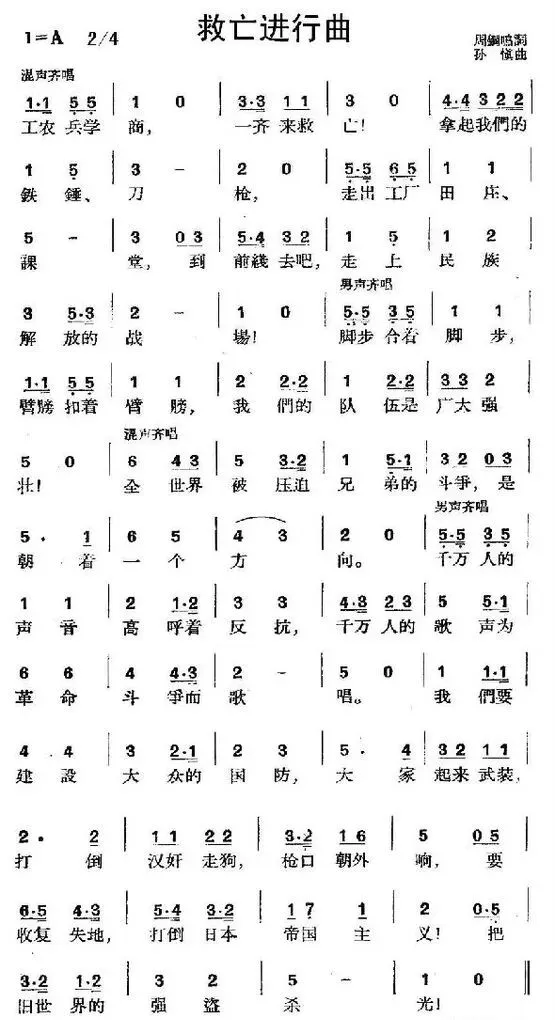 救亡进行曲
1=A 2/4
周鋼鳴詞
孙慎曲
混声齐唱
1·1 5·5 | 1 0 | 3·3 1 1 | 3 0 | 4·4 3 2 2 |
工农 兵学 商， 一齐 来救 亡！ 拿起我們的
1 5 | 3 - | 2 0 | 5·5 6 5 | 1 1 |
鉄 錘、刀 枪， 走出 工厂 田 庄、
5 - | 3 0 3 | 5·4 3 2 | 1 5 | 1 2 |
課 堂，到 前綫 去吧，走 上 民 族
男声齐唱
3 5·3 | 2 - | 1 0 | 5·5 3 5 | 1 1 |
解 放的 战 場！ 脚步 合着 脚 步，
1·1 5 5 | 1 1 | 2 2·2 | 1 2·2 | 3 3 2 |
臂膀 扣着 臂 膀，我 們的 队 伍是 广大 强
混声齐唱
5 0 | 6 4 3 | 5 3·2 | 1 5·1 | 3 2 0 3 |
壮！ 全 世界 被 压迫 兄 弟的 斗爭，是
男声齐唱
5· 1 | 6 5 | 4 3 | 2 0 | 5·5 3 5 |
朝 着 一 个 方 向。 千万 人的
1 1 | 2 1·2 | 3 3 | 4·3 2 3 | 5 5·1 |
声 音 高 呼着 反 抗，千万 人的 歌 声为
6 6 | 4 4·3 | 2 - | 5 0 | 1 1·1 |
革 命 斗 爭而 歌 唱。 我 們要
4 4 | 3 2·1 | 2 3 | 5· 4 | 3 2 1 1 |
建 設 大 众的 国 防，大 家 起来 武装，
2· 2 | 1 1 2 2 | 3·2 1 6 | 5 0 5 |
打 倒 汉奸 走狗，枪口 朝外 响，要
6·5 4·3 | 5·4 3·2 | 1 7 1 | 2 0·5 |
收复 失地，打倒 日本 帝国 主 义！把
3·2 1·2 | 3 2 | 5 - | 1 0 ‖
旧世 界的 强 盗 杀 光！